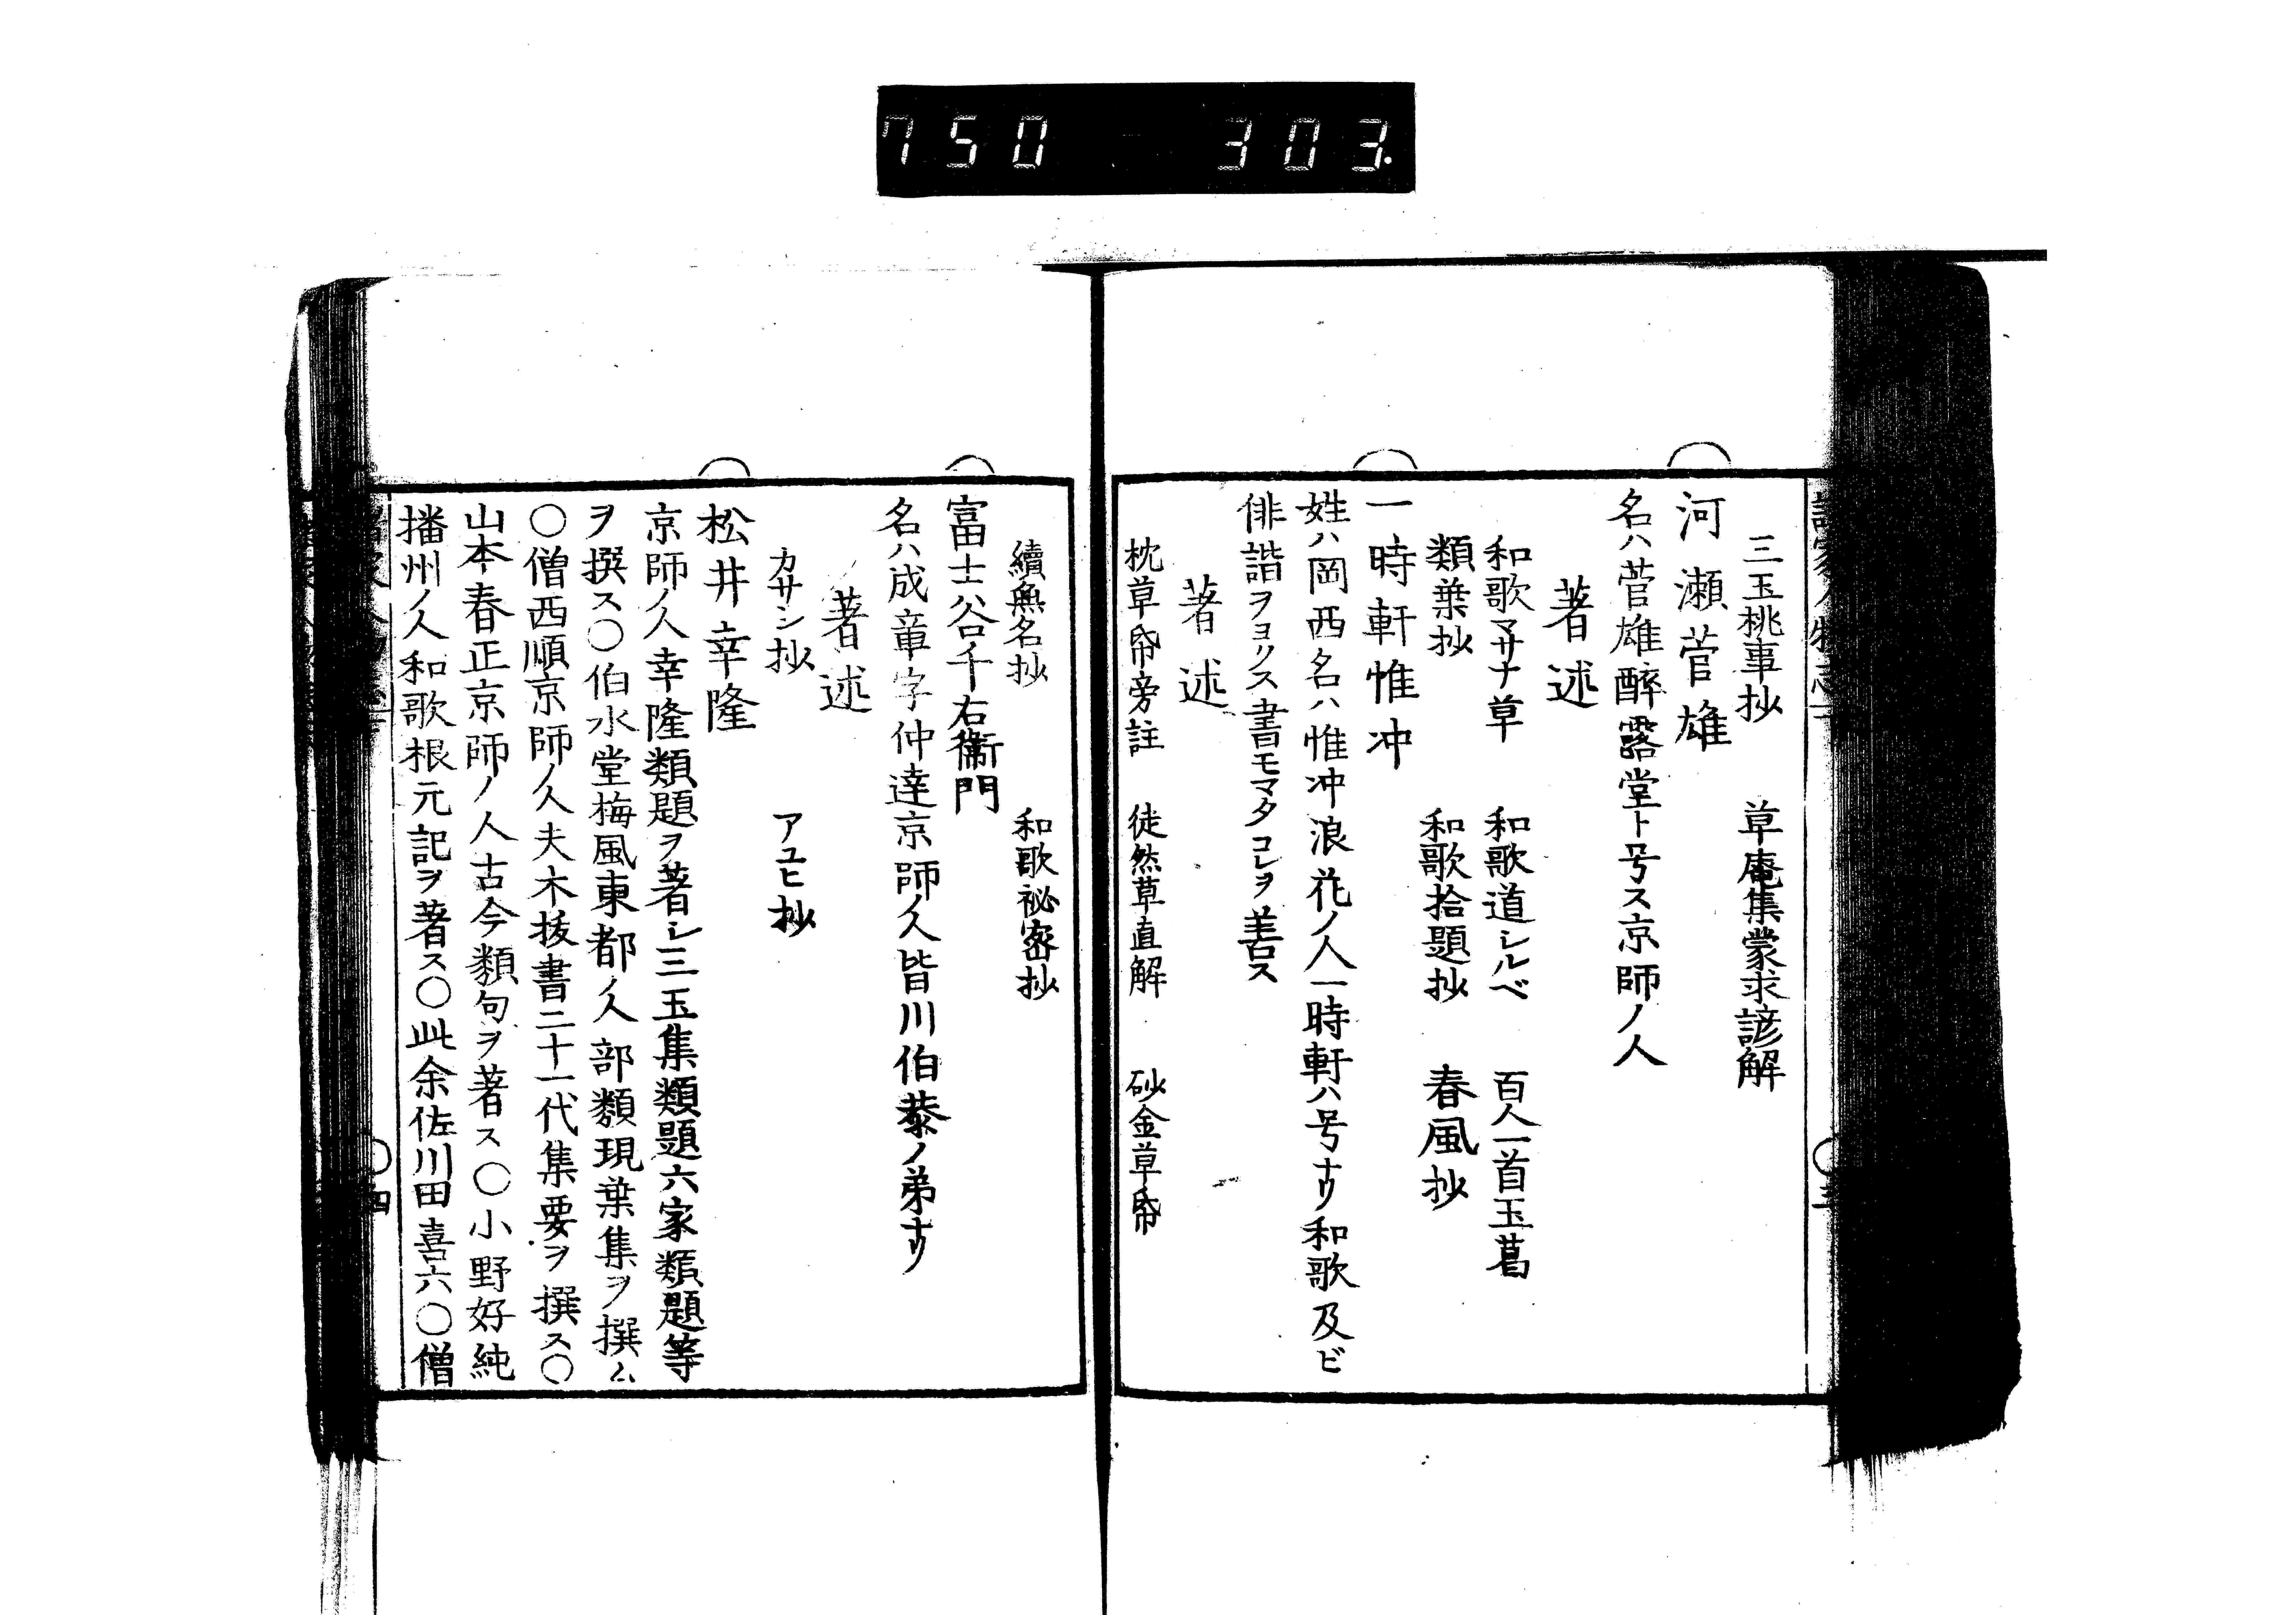 750 - 303.
三玉桃事抄　草庵集蒙求諺解
河瀬菅雄
名ハ菅雄酔露堂ト号ス京師ノ人
著述
和歌マサナ草　和歌道シルベ　百人一首玉葛
類葉抄　和歌拾題抄　春風抄
一時軒惟冲
姓ハ岡西名ハ惟冲浪花ノ人一時軒ハ号ナリ和歌及ビ
俳諧ヲヨクス書モマタコレヲ善ス
著述
枕草帋旁註　徒然草直解　砂金草帋
續無名抄　和歌祕密抄
富士谷千右衛門
名ハ成章字仲達京師ノ人皆川伯恭ノ弟ナリ
著述
カサシ抄　アユヒ抄
松井幸隆
京師ノ人幸隆類題ヲ著シ三玉集類題六家類題等
ヲ撰ス〇伯水堂梅風東都ノ人部類現葉集ヲ撰ム
〇僧西順京師ノ人夫木抜書二十一代集要ヲ撰ス〇
山本春正京師ノ人古今類句ヲ著ス〇小野好純
播州ノ人和歌根元記ヲ著ス〇此余佐川田喜六〇僧
四